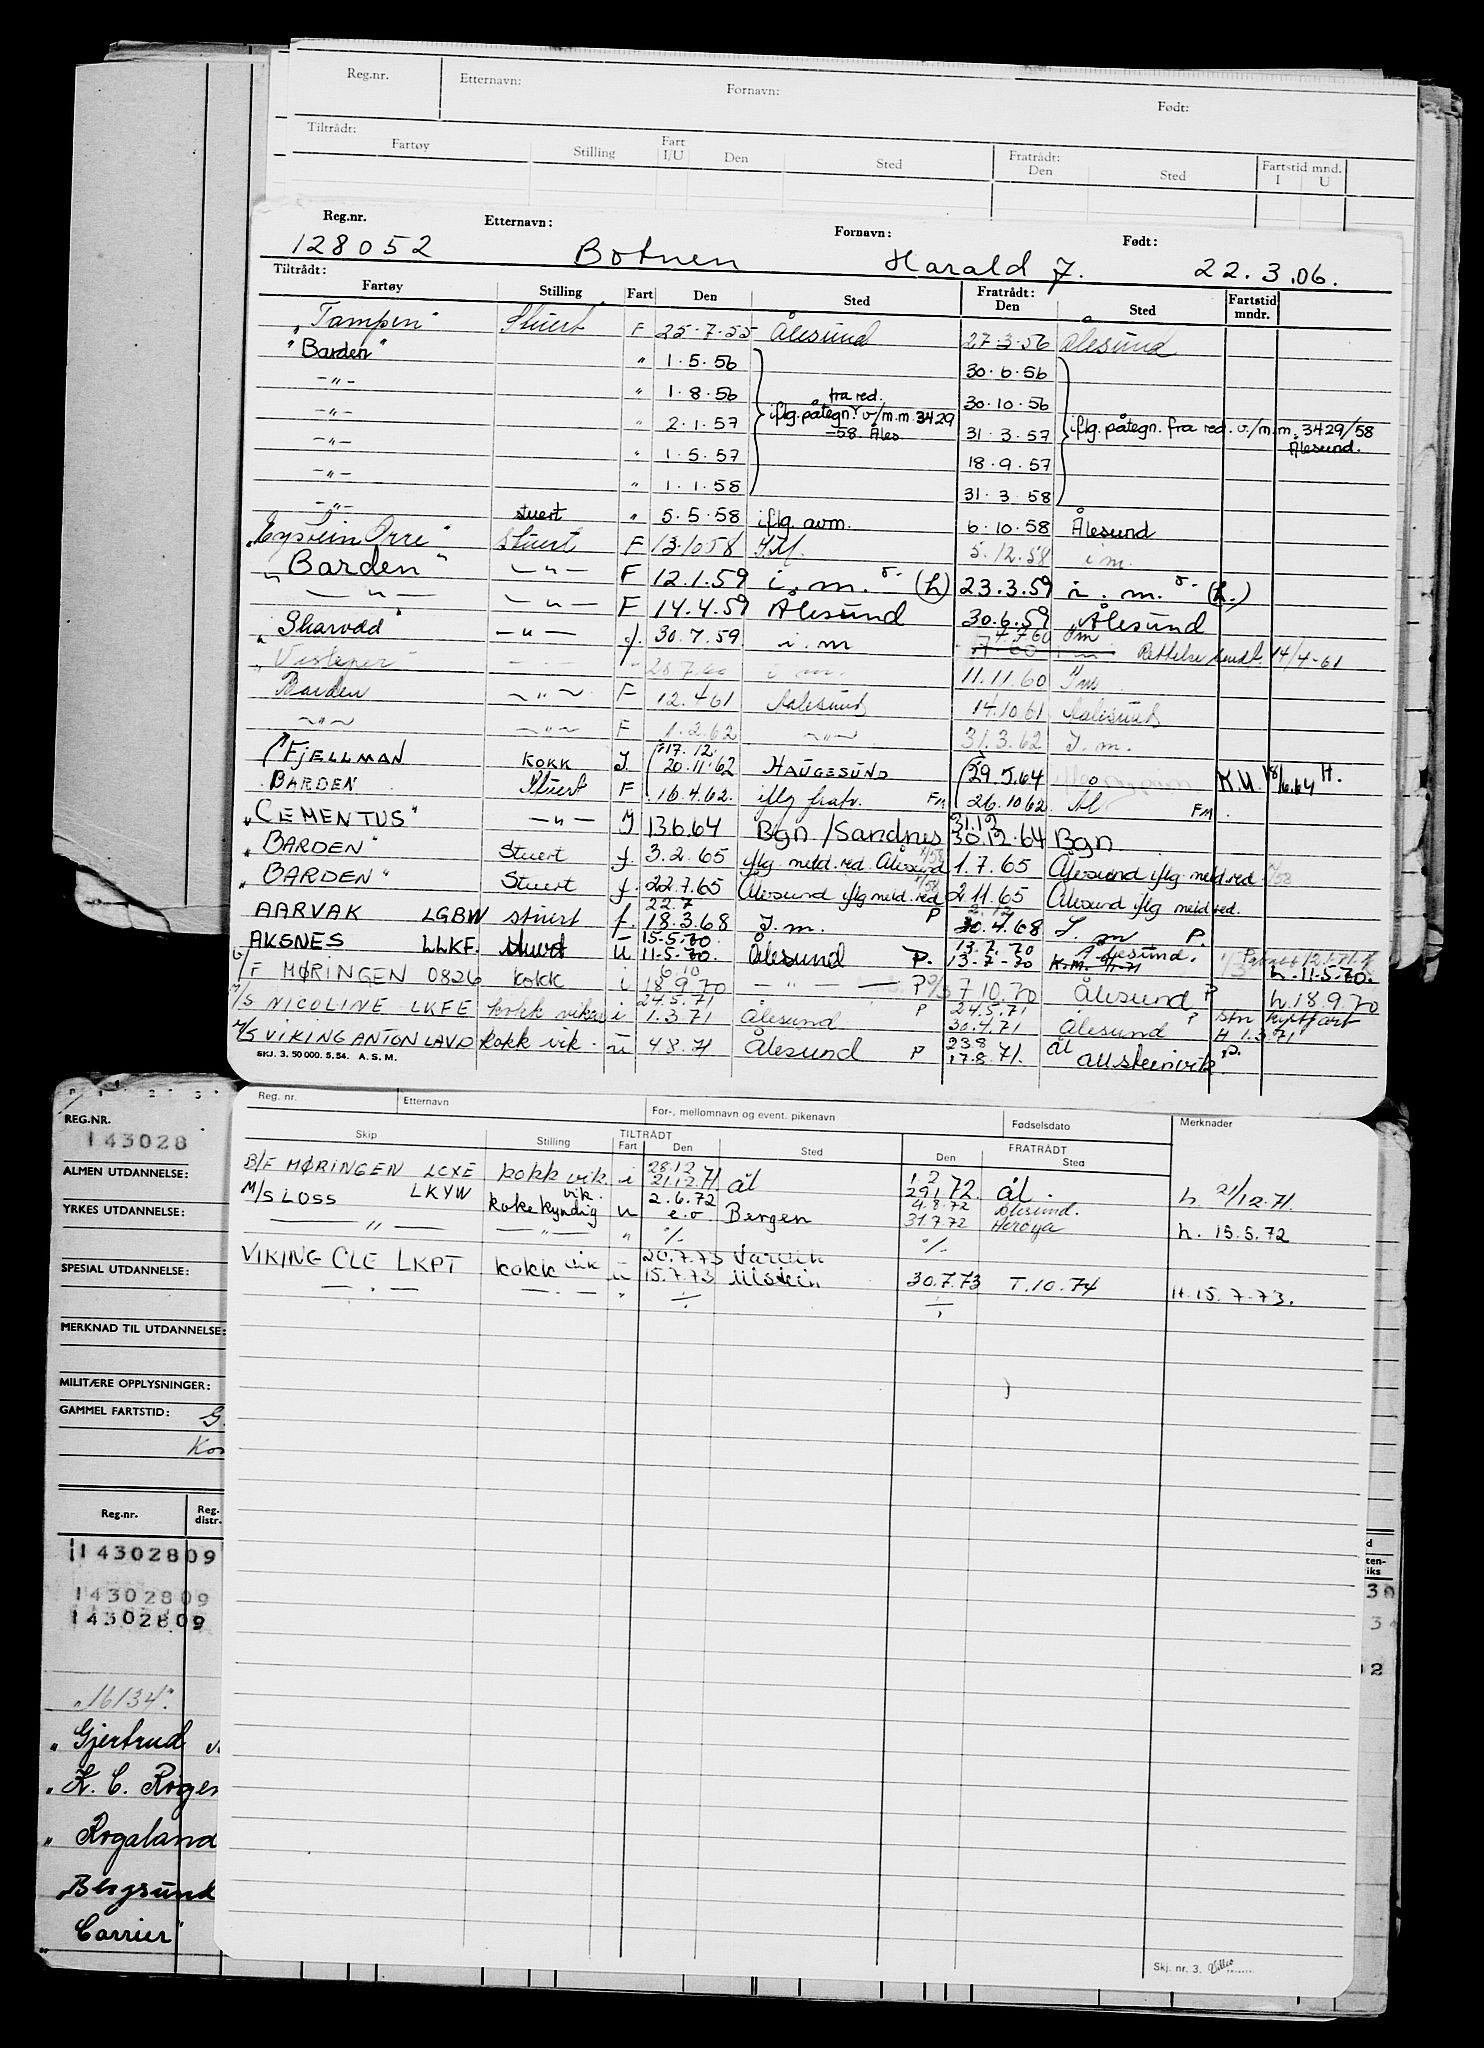 Reg.nr. Etternavn: Fornavn: Født:
Tiltrådt: Fartøy Stilling Fart I/U Den Sted Fratrådt: Den Sted Fartstid mnd. I U
Reg.nr. Etternavn: Fornavn: Født:
128052 Botnen Harald J. 22.3.06.
Tiltrådt: Fartøy Stilling Fart Den Sted Fratrådt: Den Sted Fartstid mndr.
"Tampen" Stuert F 25.7.55 Ålesund 27.3.56 Ålesund
"Barden" " 1.5.56 30.6.56
-"- " 1.8.56 fra red. 30.10.56
-"- " 2.1.57 iflg. påtegn. v/m.m. 3429 -58 Åles. 31.3.57 iflg. påtegn. fra red. v/m.m. 3429/58 Ålesund.
-"- " 1.5.57 18.9.57
-"- " 1.1.58 31.3.58
-"- stuert " 5.5.58 iflg. avm. 6.10.58 Ålesund
"Eystein Orre" Stuert F 13.10.58 I.M. 5.12.58 i m.
"Barden" -"- F 12.1.59 i. m. (h) 23.3.59 i. m. (h.)
-"- -"- F 14.4.59 Ålesund 30.6.59 Ålesund
"Skarvod -"- f. 30.7.59 i. m 7.7.60 Im Rettelse sendt 14/4-61
"Vesleper" -"- " 28.7.60 i m. 11.11.60 I m
Barden -"- F 12.4.61 Aalesund 14.10.61 Aalesund
-"- -"- F 1.2.62 -"- 31.3.62 I. m.
FJELLMAN KOKK I. 17.12. 20.11.62 HAUGESUND 29.5.64 K.U. 18/6.64 H.
BARDEN Stuert F 16.4.62. iflg frafr. FM 26.10.62 Ål FM
"CEMENTUS" -"- I 13.6.64 Bgn/Sandnes 31.12 30.12.64 Bgn.
"BARDEN" Stuert f. 3.2.65 iflg. meld. red. Ålesund 1.7.65 Ålesund iflg. meld. red
"BARDEN" Stuert f. 22.7.65 Ålesund iflg meld. red 2.11.65 Ålesund iflg meld red.
AARVAK LGBW stuert f. 22.7 18.3.68 I. m. P 30.4.68 I. m P.
AKSNES LLKF. stuert u 15.5.70. 11.5.70. Ålesund P. 13.7.70 13.7-70 Ålesund. h. 11-5.70.
B/F MØRINGEN 0826 kokk i 6.10 18.9.70 -"- P 7.10.70 Ålesund P h. 18.9.70
M/S NICOLINE LKFE kokk vikar i 24.5.71 1.3.71 Ålesund P 24.5.71 30.4.71 Ålesund P Stn kystfart H 1.3.71
M/S VIKING ANTON LAVD kokk vik. u 4.8.71 Ålesund P 23.8 17.8.71. Ål Ulsteinvik P.
SKJ. 3. 50 000. 5. 54. A. S. M.
Reg. nr. Etternavn For-, mellomnavn og event. pikenavn Fødselsdato Merknader
Skip Stilling TILTRÅDT Fart Den Sted FRATRÅDT Den Sted
B/F MØRINGEN LCXE kokk vik. i 28.12 21.12.71. Ål 1.2 29.1.72. Ål. h. 21/12.71.
M/S LOSS LKYW kokekyndig vik. u 2.6.72 e.o. Bergen 4.8.72 31.7.72 Ålesund. Herøya
-"- -"- " -/- -/- h. 15.5.72
VIKING OLE LKPT kokk vik u 20.7.73 15.7.73 Ulstein 30.7.73 T.10.74 H. 15.7.73.
Skj. nr. 3.
REG.NR.
143028
ALMEN UTDANNELSE:
YRKES UTDANNELSE:
SPESIAL UTDANNELSE:
MERKNAD TIL UTDANNELSE:
MILITÆRE OPPLYSNINGER:
GAMMEL FARTSTID:
Reg.nr. Reg. distr.
14302809
14302809
14302809
"16134"
"Gjertrud
"K. C. Roger
"Rogaland
"Bergsund
"Carrier"